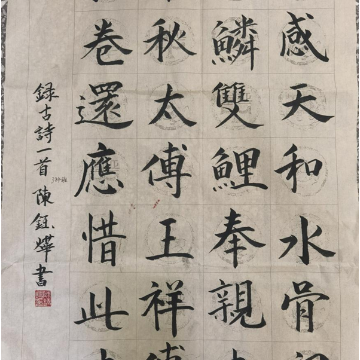 感天和水骨
鱗雙鯉奉親
秋太傅王祥
卷還應惜此
録古詩一首陳鈺燁書